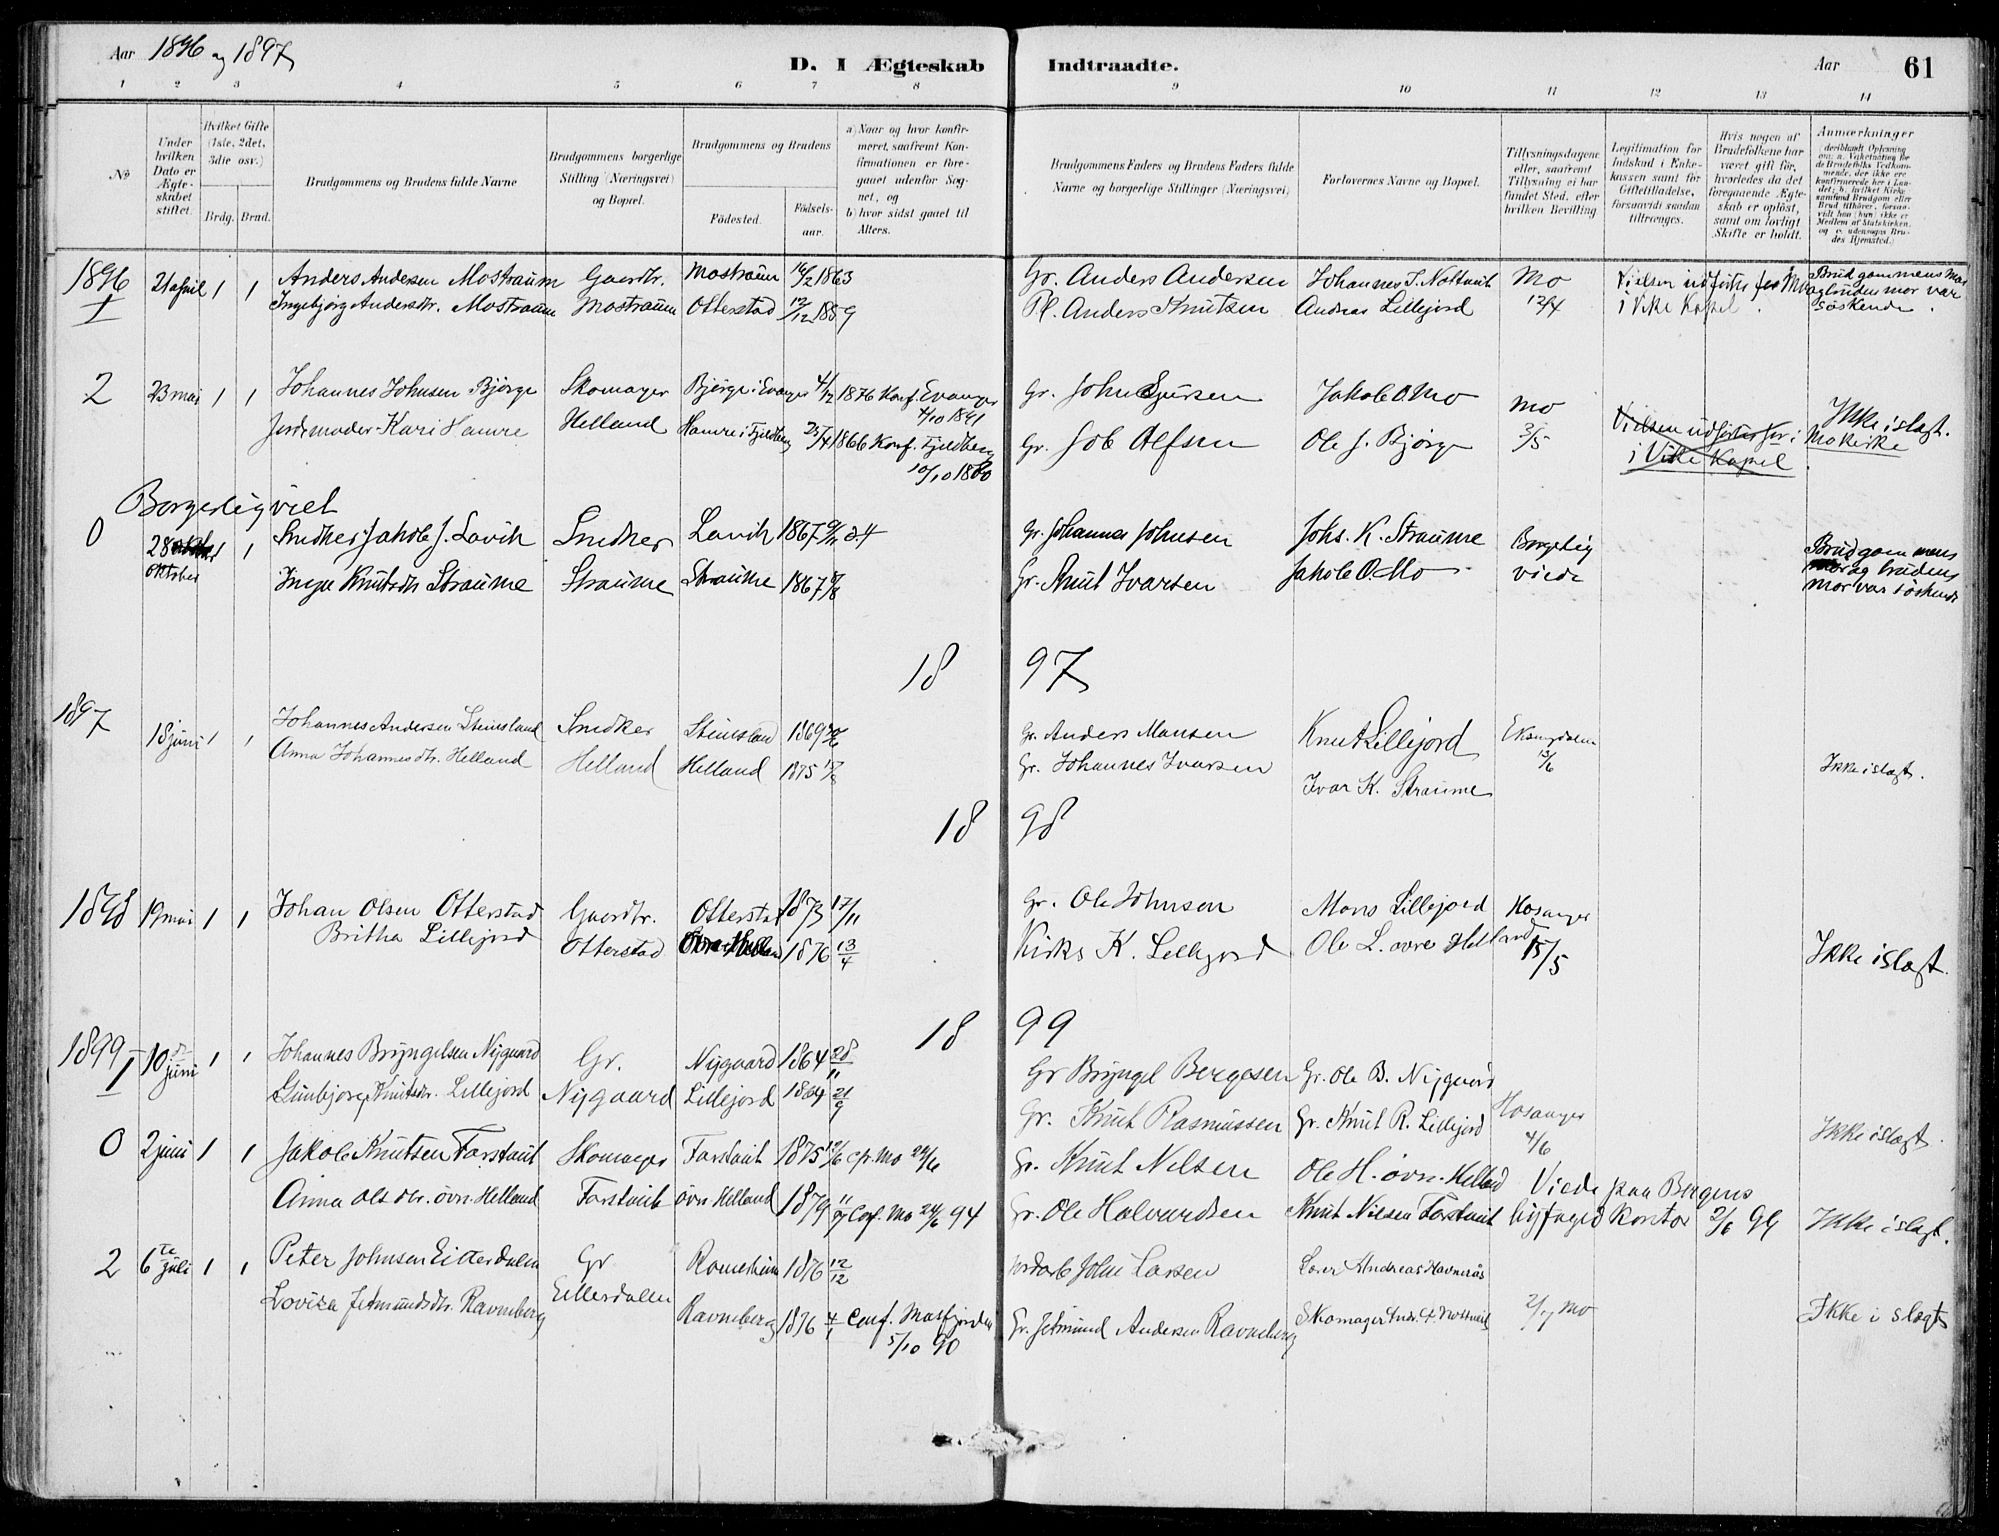 Aar 1896 og 1897
D. I Ægteskab Indtraadte. Aar 61
1 2 3 4 5 6 7 8 9 10 11 12 13 14
No
Under hvilken Dato er Ægteskabet stiftet.
Hvilket Gifte (1ste, 2det, 3die osv.)
Brdg. Brud.
Brudgommens og Brudens fulde Navne
Brudgommens borgerlige Stilling (Næringsvei) og Bopæl.
Brudgommens og Brudens
Fødested. Fødselsaar.
a) Naar og hvor konfirmeret, saafremt Konfirmationen er foregaaet udenfor Sognet, og
b) hvor sidst gaaet til Alters.
Brudgommens Faders og Brudens Faders fulde Navne og borgerlige Stillinger (Næringsvei)
Forlovernes Navne og Bopæl.
Tillysningsdagene eller, saafremt Tillysning ei har fundet Sted, efter hvilken Bevilling
Legitimation for Indskud i Enkekassen samt for Giftetilladelse, forsaavidt saadan tiltrænges.
Hvis nogen af Brudefolkene har været gift før, hvorledes da det foregaaende Ægteskab er opløst, samt om lovligt Skifte er holdt.
Anmærkninger
1896 21 april 1 1 Anders Andersen Mostraum Gaardbr. Mostraum 14/2 1863 Gr. Anders Andersen Johannes J. Nottveit Mo Vielsen udførtes for Mo Brudgommens mor
1 Ingebjørg Andersdtr. Mostraum Mostraum Otterstad 12/12 1859 Pl. Anders Knutsen Andreas Lillejord 12/4 i Vike Kapel og brudens mor var
søskende.
2 23 mai 1 1 Johannes Johnsen Bjørge Skomager Bjørge i Evanger 4/12 1876 Konf. Evanger Gr. John Sjursen Jakob O. Mo Mo
4/10 1891
Jordemoder Kari Hamre Helland Hamre i Fjeldberg 25/4 1866 Konf. Fjeldberg Gr. Job Alfsen Ole J. Bjørge 3/5 Vielsen udførtes for i Mo Kirke Ikke i slægt.
10/10 1880 i Vike Kapel
Borgerlig viet
0 28 oktober 1 1 Snedker Jakob J. Lavik Snedker Lavik 1867 Gr. Johannes Johnsen Johs. K. Straume Borgerlig Brudgommens
oktober Inga Knutsdtr Straume Straume Straume 1867 Gr. Knut Ivarsen Jakob O. Mo viede mor og brudens
mor var søskende
18 97
1897 18 juni 1 1 Johannes Andersen Steinsland Snedker Steinsland 1869 Gr. Anders Monsen Knut Lillejord Eksingdalen
Anna Johannesdtr. Helland Helland Helland 1875 17/8 Gr. Johannes Ivarsen 13/6 Ikke i slægt.
Ivar K. Straume
18 98
1898 19 mai 1 1 Johan Olsen Otterstad Gaardbr. Otterstad 1873 17/11 Gr. Ole Johnsen Mons Lillejord Hosanger
Britha Lillejord Otterstad 1876 13/4 Kirks. K. Lillejord Ole L. øvre Helland 15/5 Ikke i slægt.
18 99
1899 10de juni 1 1 Johannes Bryngelsen Nygaard Gr. Nygaard 1864 28/11 Gr Bryngel Bergesen Gr. Ole B. Nygaard
1 Gunbjorg Knutsdtr. Lillejord Nygaard Lillejord 1864 21/9 Gr. Knut Rasmussen Gr. Knut R. Lillejord Hosanger 4/6 Ikke i slægt.
0 2 juni 1 1 Jakob Knutsen Farstveit Skomager Farstveit 1875 Mo Gr. Knut Nilsen Ole H. øvr. Helland Viede paa Bergens
Anna Olsdtr. øvr. Helland Farstveit øvr. Helland 1879 11/9 Conf. Mo 24/6 94 Gr. Ole Halvardsen Knut Nilsen Farstveit byfoged kontor 2/6 99 Ikke i slægt.
2 6te juli 1 1 Peter Johnsen Eitterdalen Gr Romereim 1876 12/12 John Larsen Lærer Andreas Havnerås
Lovisa Jetmundsdtr. Ravneberg Eitterdalen Ravneberg 1876 4/1 Conf. Masfjorden Gr. Jetmund Andersen Ravneberg Skomager 2/7 Mo Ikke i slægt
5/10 90